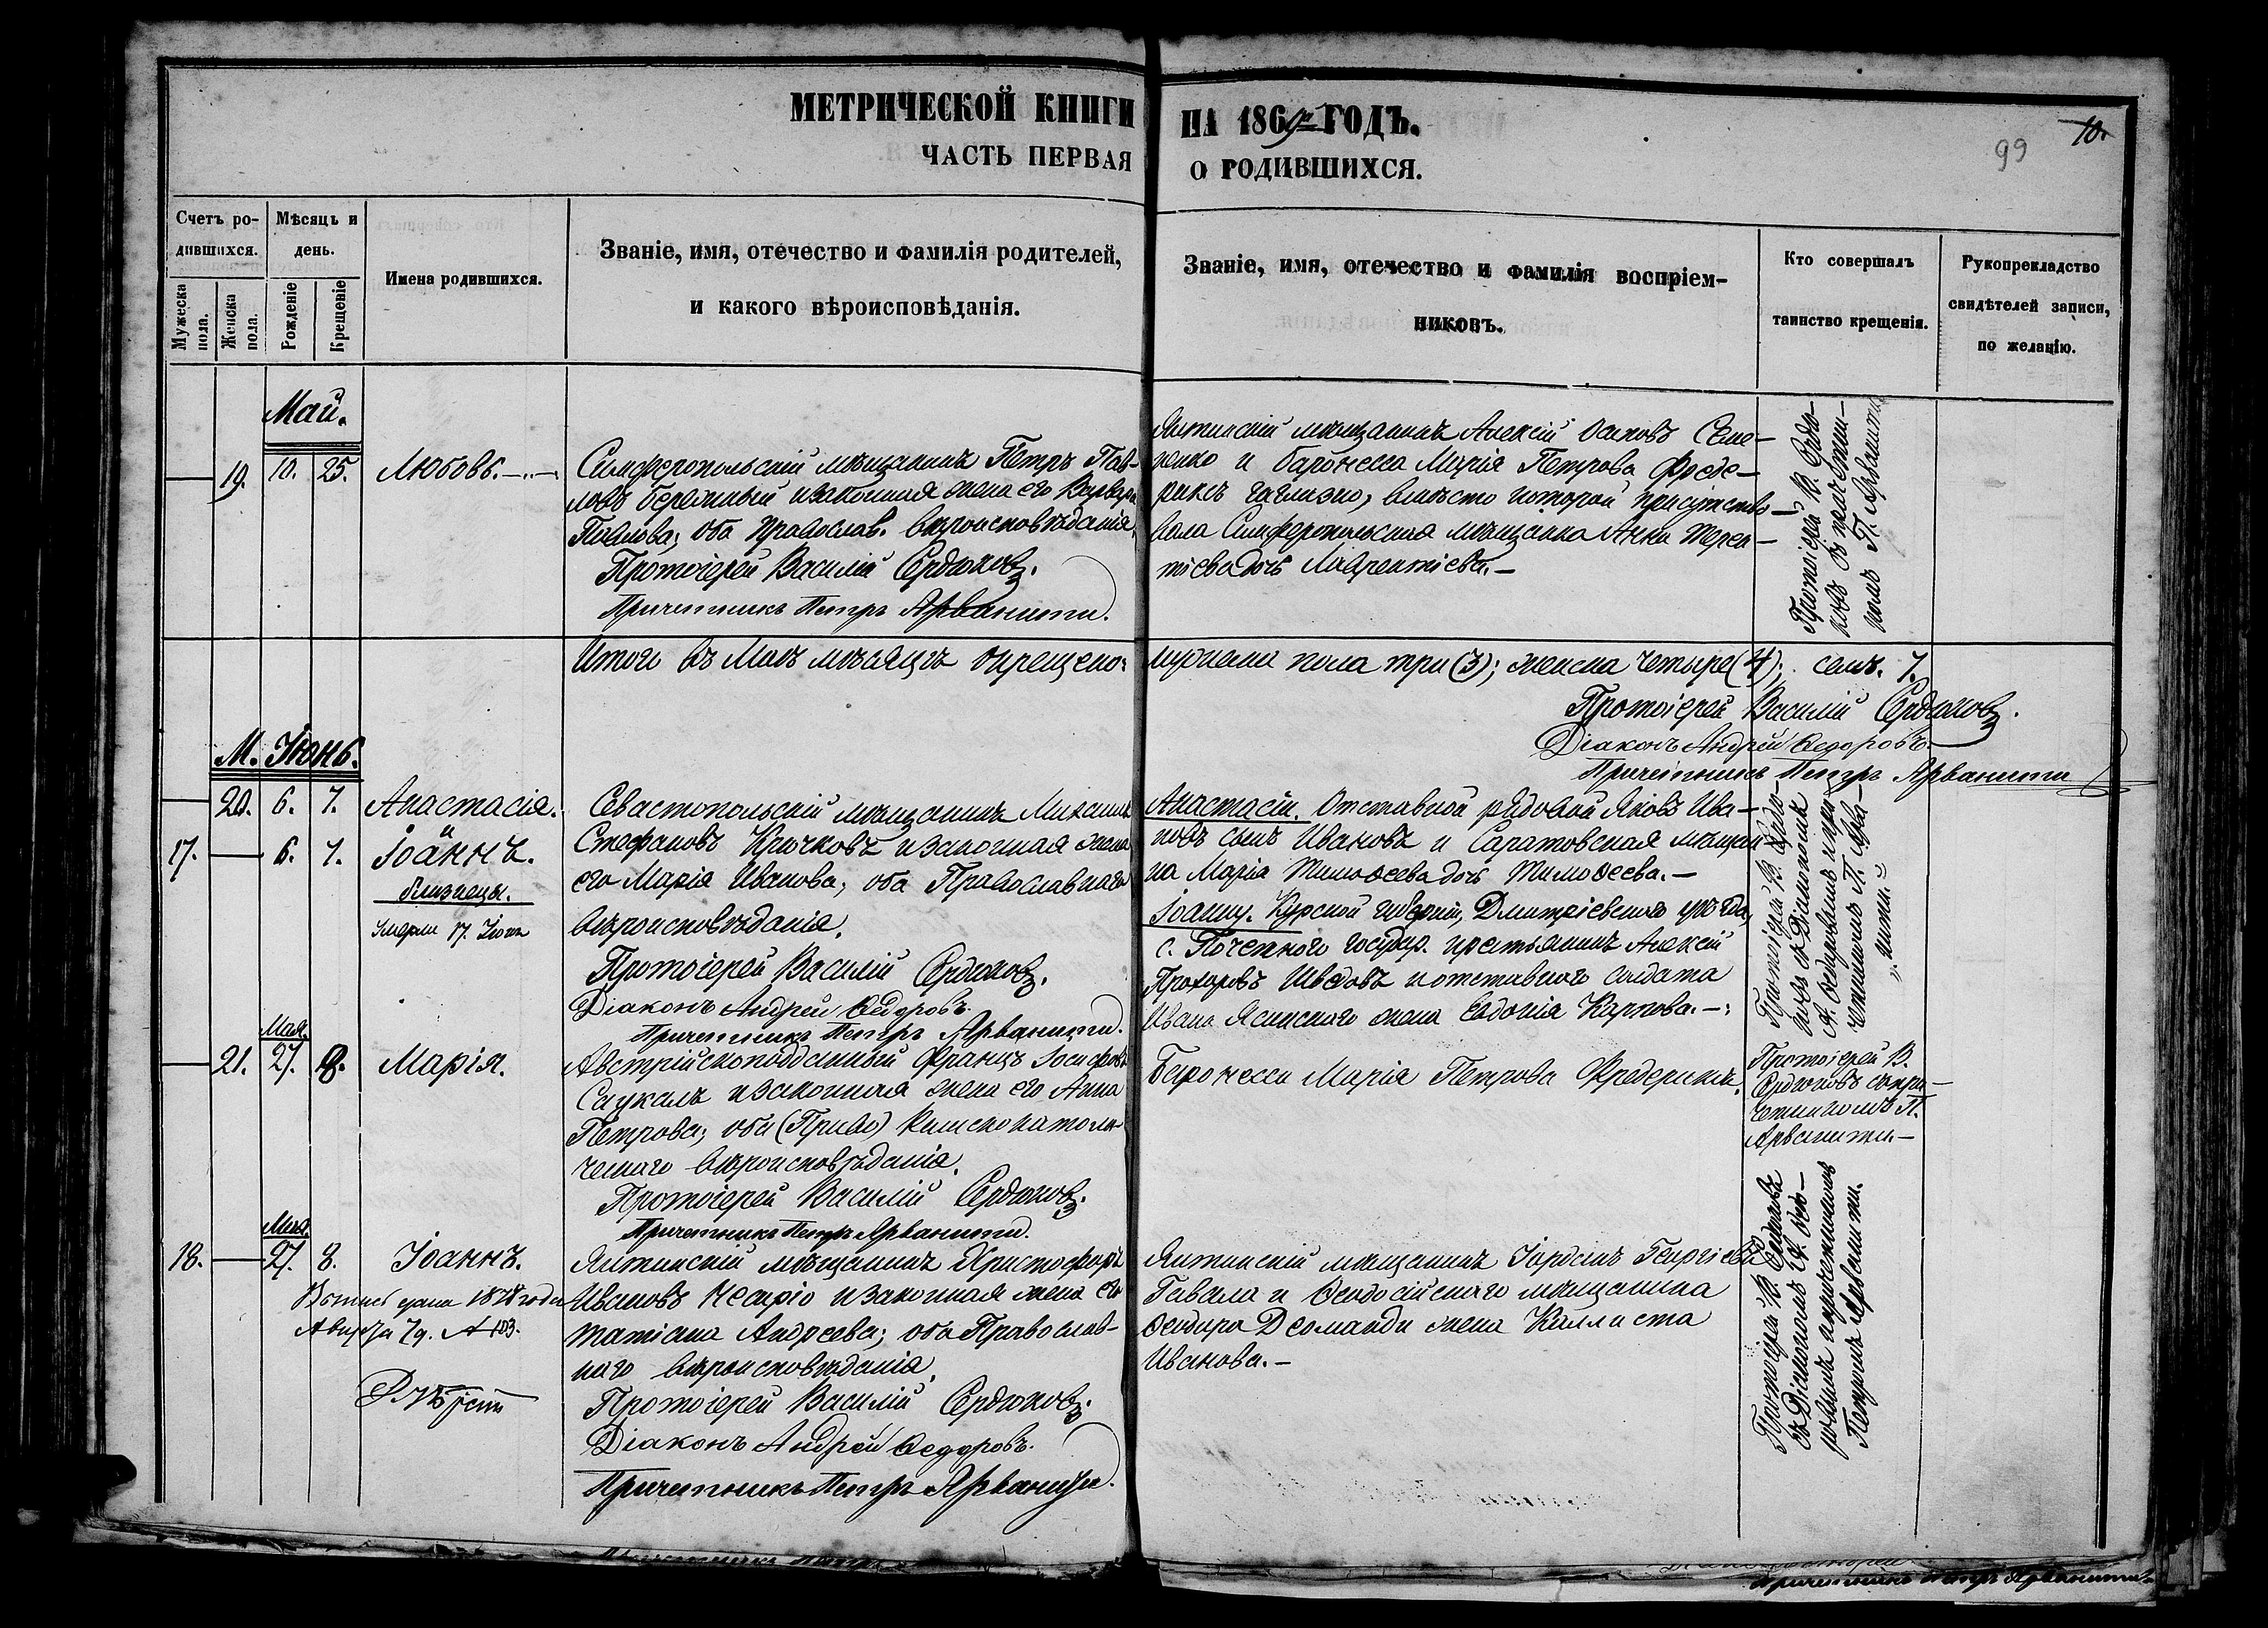 МЕТРИЧЕСКОЙ КНИГИ НА 1869й ГОДЪ.
ЧАСТЬ ПЕРВАЯ О РОДИВШИХСЯ.
99 10.
Счетъ родившихся.
Мужеска пола.
Женска пола.
Мѣсяцъ и день.
Рожденіе
Крещеніе
Имена родившихся.
Званіе, имя, отечество и фамилія родителей,
и какого вѣроисповѣданія.
Званіе, имя, отечество и фамилія воспріем-
никовъ.
Кто совершалъ
таинство крещенія.
Рукоприкладство
свидѣтелей записи,
по желанію.
Май.
19. 10. 25. Любовь.
Симферопольскій мѣщанинъ Петръ Пав-
ловъ Бережный и законная жена его Варвара
Павлова; оба православ. вѣроисповѣданія.
Протоіерей Василій Сердюковъ.
Причетникъ Петръ Арванити.
Ялтинскій мѣщанинъ Алексій Осиповъ Семе-
ренко и баронесса Марія Петрова Фреде-
риксъ вмѣсто которой присутство-
вала Симферопольская мѣщанка Анна Терен-
тіева дочь Лаврентіева.-
Протоіерей В. Сердю-
ковъ съ причетни-
комъ П. Арванити
Итого въ Маѣ мѣсяцѣ окрещено: мужеска пола три (3); женска четыре (4); семь. 7.
Протоіерей Василій Сердюковъ.
Діаконъ Андрей Ѳедоровъ.
Причетникъ Петръ Арванити
М. Іюнь.
20. 6. 7. Анастасія.
17. 6. 7. Іоаннъ.
близнецы.
Умерли 17. Іюня
Севастопольскій мѣщанинъ Михаилъ
Стефановъ Крючковъ и законная жена
его Марія Иванова; оба Православнаго
вѣроисповѣданія.
Протоіерей Василій Сердюковъ.
Діаконъ Андрей Ѳедоровъ.
Причетникъ Петръ Арванити.
Анастасіи. Отставной рядовой Яковъ Ива-
новъ сынъ Ивановъ и Саратовская мѣщан-
ка Марія Тимоѳеева дочь Тимоѳеева.-
Іоанну. Курской губерніи, Дмитріевскаго уѣзда,
с. Поченного государ. крестьянинъ Алексій
Прохоровъ Шведовъ и отставного солдата
Ивана Ясинскаго жена Евдокія Карпова.-
Протоіерей В. Сердю-
ковъ съ Діакономъ
А. Ѳедоровымъ и при-
четникомъ П. Арва-
нити.
Мая.
21. 27. 8. Марія.
Австрійскоподданный Францъ Іосифовъ
Саукалъ и законная жена его Анна
Петрова; оба (Право) Римскокатоли-
ческаго вѣроисповѣданія.
Протоіерей Василій Сердюковъ.
Причетникъ Петръ Арванити.
Баронесса Марія Петрова Фредериксъ.
Протоіерей В.
Сердюковъ съ при-
четникомъ П.
Арванити.-
Мая.
18. 27. 8. Іоаннъ.
1878 года
Августа 7д. № 103.
Ялтинскій мѣщанинъ Христофоръ
Ивановъ Чесаріо и законная жена его
Татіана Андреева; оба Православ-
наго вѣроисповѣданія.
Протоіерей Василій Сердюковъ.
Діаконъ Андрей Ѳедоровъ.
Причетникъ Петръ Арванити.
Ялтинскій мѣщанинъ Іорданъ Георгіевъ
Гавала и Ѳеодосійскаго мѣщанина
Ѳеодора Деоманди жена Каллиста
Иванова.-
Протоіерей В. Сердюковъ
съ Діакономъ А. Ѳедо-
ровымъ и причетникомъ
Петромъ Арванити.
Причетникъ Петръ Арванити